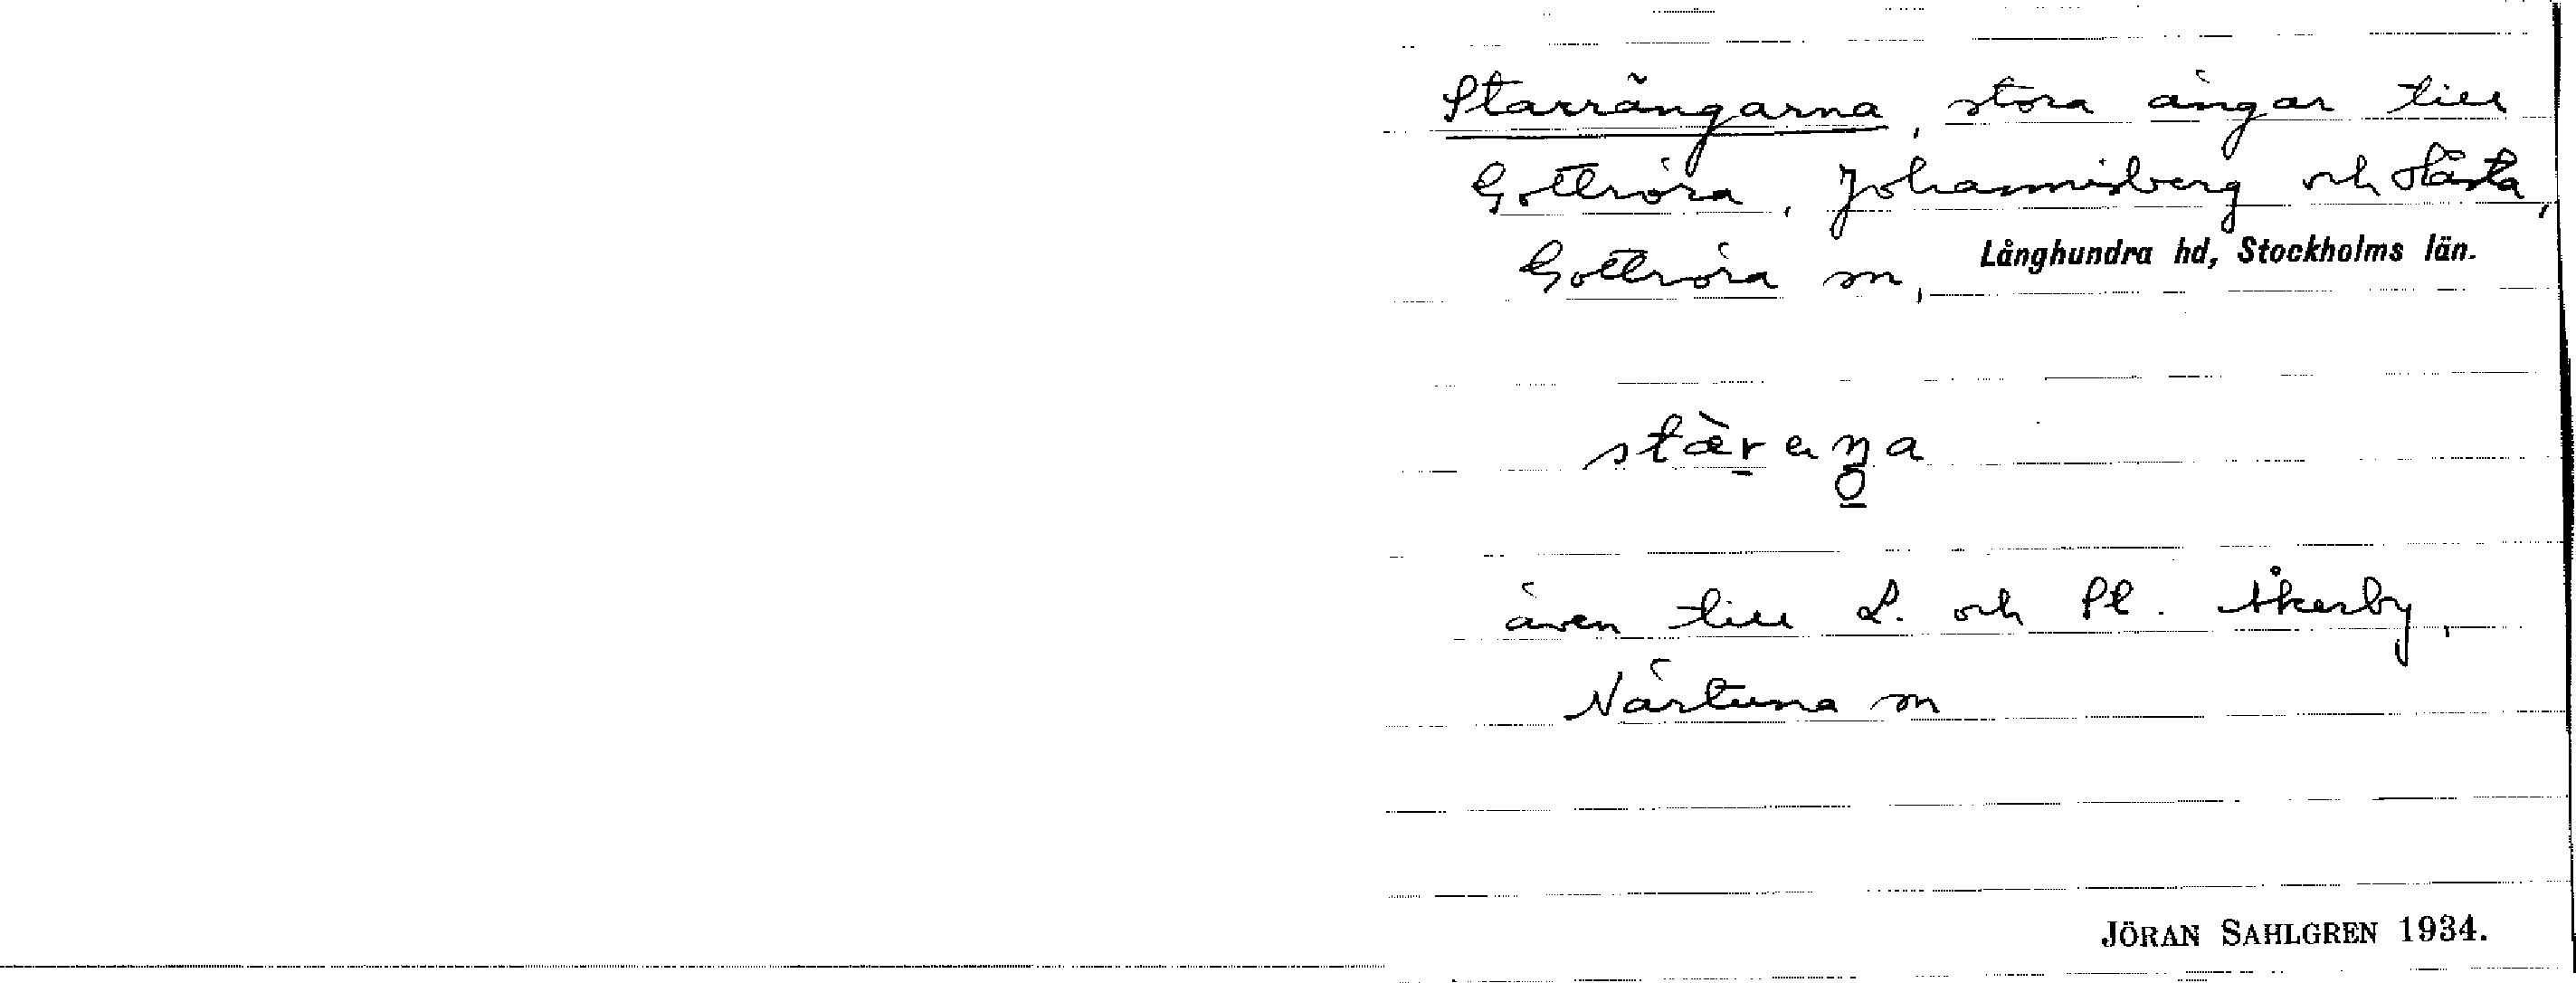 Starrängarna, stora ängar till
Gottröra, Johannisberg och Hästa,
Gottröra sn, Långhundra hd, Stockholms län.
även till L. och St. Åkerby,
Närtuna sn
JÖRAN SAHLGREN 1934.